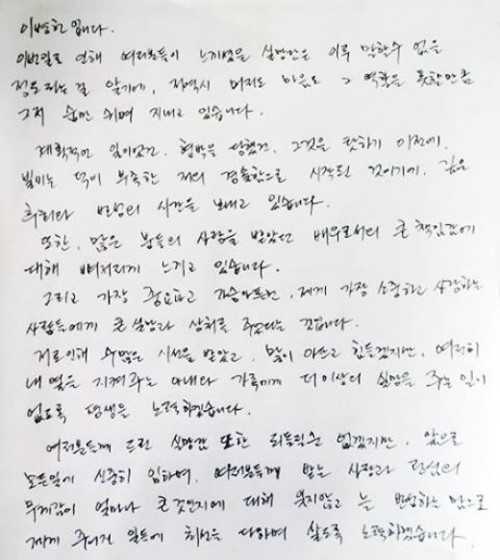 이병헌입니다.
이번일로 인해 여러분들이 느끼셨을 실망감은 이루 말할수 없을
정도라는걸 알기에, 저역시 머리도 마음도 그 역할을 못할만큼
그저 숨만 쉬며 지내고 있습니다.
계획적인 일이었건, 협박을 당했건, 그것을 탓하기 이전에,
빌미는 덕이 부족한 저의 경솔함으로 시작된 것이기에, 깊은
후회와 반성의 시간을 보내고 있습니다.
또한, 많은 분들의 사랑을 받았던 배우로서의 큰 책임감에
대해 뼈저리게 느끼고 있습니다.
그리고 가장 중요하고 가슴아프건, 제게 가장 소중하고 사랑하는
사람들에게 큰 실망과 상처를 주었다는 겁니다.
저로인해 수많은 시선을 받았고, 많이 아프고 힘들겠지만, 여전히
내 옆을 지켜주는 아내와 가족에게 더이상의 실망을 주는 일이
없도록 평생을 노력하겠습니다.
여러분들께 드린 실망감 또한 되돌릴순 없겠지만, 앞으로
모든일에 신중히 임하며, 여러분들께 받는 사랑과 관심의
무게감이 얼마나 큰 것인지에 대해 잊지않고 늘 반성하는 맘으로
제게 주어진 일들에 최선을 다하며 살도록 노력하겠습니다.